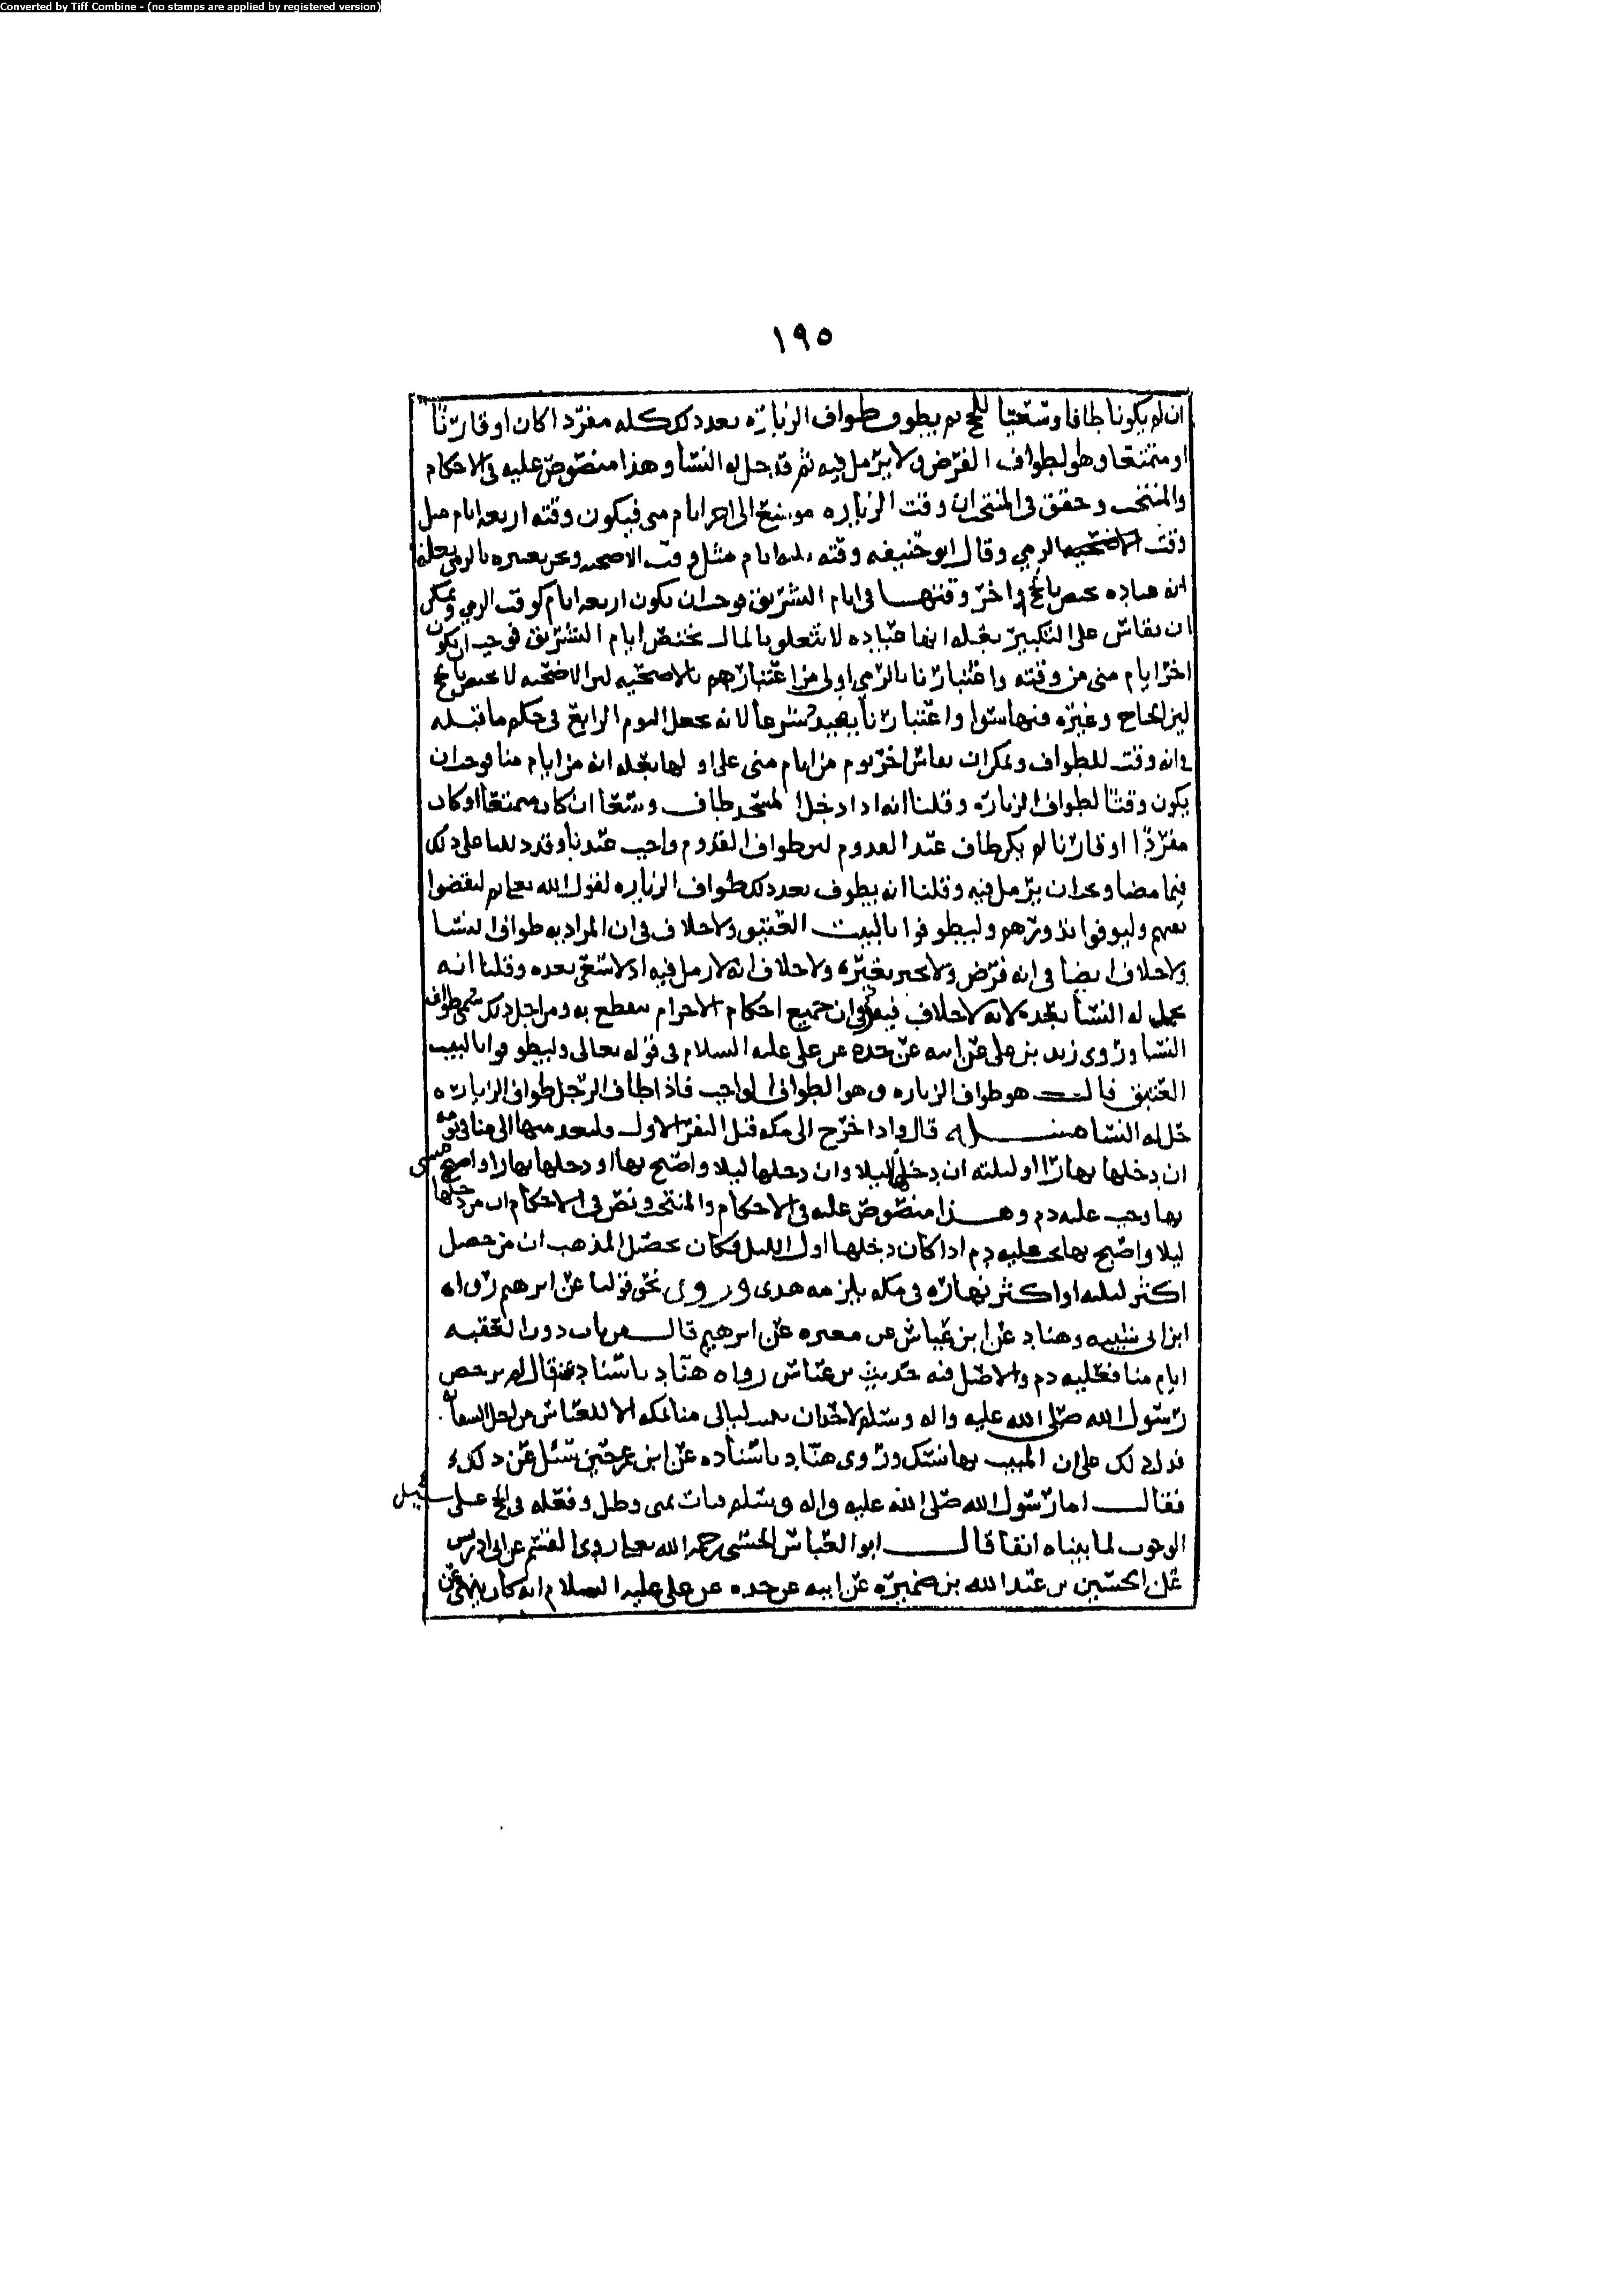 Converted by Tiff Combine - (no stamps are applied by registered version)
١٩٥
ان لم يكونا طافا وسعيا للحج ثم يطوف طواف الزيارة بعد ذلك كله مفردا كان او قارنا
او متمتعا وهو لطواف الفرض ولا يرمل فيه ثم قد حل له النسا وهذا منصوص عليه في الاحكام
والمنتخب وحقق في المنتخب ان وقت الزياره موسع الى اخر ايام منى فيكون وقته اربعه ايام مثل
وقت الرمي وقال ابو حنيفه وقته ثلثه ايام مثل وقت الاضحيه ونحن نعتبره بالرمي بعلة
انه عباده تختص بالحج واخر وقتها في ايام التشريق فوجب ان يكون اربعه ايام كوقت الرمي ويمكن
ان يقاس على التكبير بعلة انها عباده لا تتعلق بالمال تختص ايام التشريق فوجب ان يكون
اخر ايام منى من وقته واعتبارنا بالرمي اولى من اعتبارهم بالاضحيه لان الاضحيه لا تختص بالحج
لان الحاج وغيره فيها سوا واعتبارنا يفيد شرعا لانه يجعل اليوم الرابع في حكم ما قبله
في انه وقت للطواف ويمكن ان يقاس اخر يوم من ايام منى على اولها بعلة انه من ايام منا فوجب ان
يكون وقتا لطواف الزياره وقلنا انه اذا دخل المسجد طاف وسعا ان كان متمتعا او كان
مفردا او قارنا لم يكن طاف عند القدوم لان طواف القدوم واجب عندنا وقد دللنا على ذلك
فيما مضا ويجب ان يرمل فيه وقلنا انه يطوف بعد ذلك طواف الزياره لقول الله تعالى ثم ليقضوا
تفثهم وليوفوا نذورهم وليطوفوا بالبيت العتيق ولا خلاف في ان المراد به طواف النسا
ولا خلاف ايضا في انه فرض ولا يجبر بغيره ولا خلاف انه لا رمل فيه اذ لا سعي بعده وقلنا انه
يحل له النسا بعده لانه لا خلاف فيه وفي ان جميع احكام الاحرام تنقطع به ومن اجل ذلك سمي طواف
النسا وروى زيد بن علي عن ابيه عن جده عن علي عليه السلام في قوله تعالى وليطوفوا بالبيت
العتيق قال هو طواف الزياره وهو الطواف الواجب فاذا طاف الرجل طواف الزياره
حل له النسا مسئله قال واذا خرج الى مكه قبل النفر الاول وليعد منها الى منا في يومه
ان دخلها نهارا او ليلته ان دخلها ليلا وان دخلها ليلا واصبح بها او دخلها نهارا وامسى
بها وجب عليه دم وهذا منصوص عليه في الاحكام والمنتخب ونص في الاحكام ان من دخلها
ليلا واصبح بها يجب عليه دم اذا كان دخلها اول الليل فكان محصل المذهب ان من حصل
اكثر ليله او اكثر نهاره في مكه يلزمه هدى وروي نحو قولنا عن ابرهيم رواه
ابن ابي شيبه وهناد عن ابن عياش عن مغيره عن ابرهيم قال من بات دون العقبه
ايام منا فعليه دم والاصل فيه حديث بن عباس رواه هناد باسناده عنه قال لم يرخص
رسول الله صلى الله عليه واله وسلم لاحد ان يبيت ليالي منا بمكه الا للعباس من اجل السقايه
فدل ذلك على ان المبيت بها نسك وروى هناد باسناده عن ابن عمر حين سئل عن ذلك
فقال اما رسول الله صلى الله عليه واله وسلم فبات بمنى وظل وفعله في الحج على سبيل
الوجوب لما بيناه انفا قال ابو العباس الحسني رحمه الله تعالى روى القسم عن ابي ادريس
عن الحسين بن عبد الله بن ضميره عن ابيه عن جده عن علي عليه السلام انه كان ينهى عن